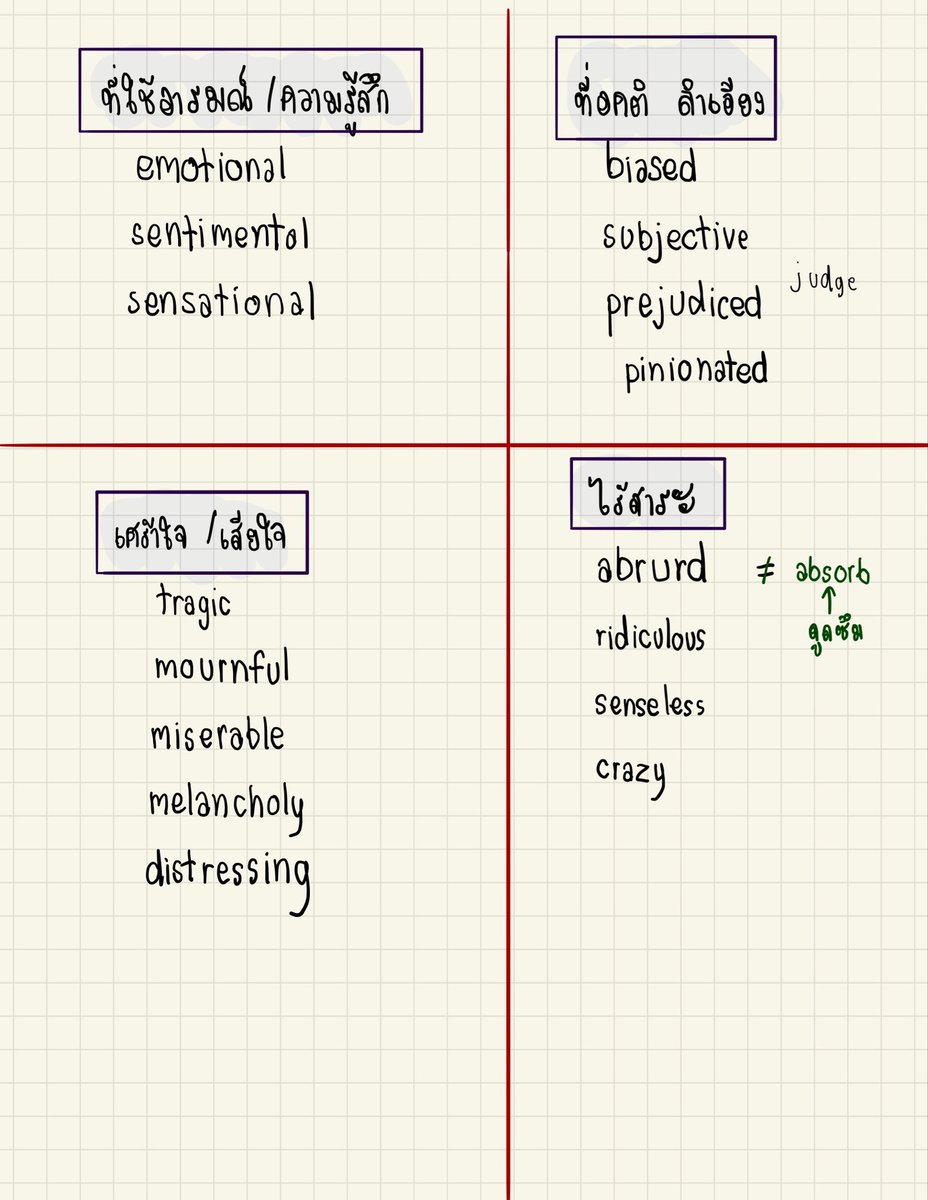 ที่ใช้อารมณ์ /ความรู้สึก
emotional
sentimental
sensational
ที่อคติ ลำเอียง
biased
subjective
prejudiced judge
pinionated
เศร้าใจ /เสียใจ
tragic
mournful
miserable
melancholy
distressing
ไร้สาระ
abrurd ≠ absorb
↑
ดูดซึม
ridiculous
senseless
crazy